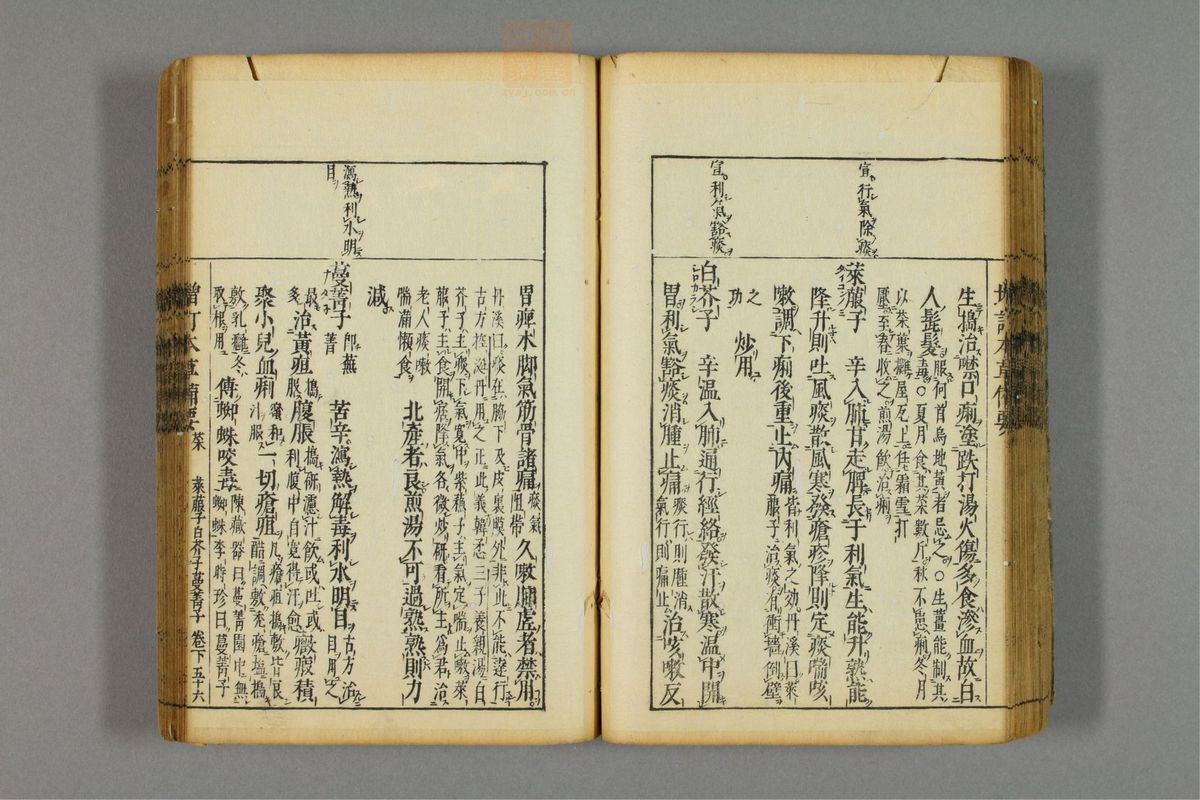 增訂本草備要
生搗治噤口痢塗跌打湯火傷多食滲血故白
人髭髮服何首烏地黃者忌之○生薑能制其
毒○夏月食其菜數斤秋不患痢冬月
以菜葉攤屋瓦上任霜雪打
壓至春收之煎湯飲治痢
宣行氣除痰
萊菔子 辛入肺甘走脾長于利氣生能升熟能
降升則吐風痰散風寒發瘡疹降則定痰喘咳
嗽調下痢後重止內痛皆利氣之功丹溪曰萊
菔子治痰有衝墻倒壁
之功
炒用
宣利氣豁痰
白芥子 辛溫入肺通行經絡發汗散寒溫中開
胃利氣豁痰消腫止痛痰行則腫消
氣行則痛止治咳嗽反
胃痺木腳氣筋骨諸痛痰氣
阻滯久嗽肺虛者禁用
丹溪曰痰在脇下及皮裏膜外非此不能達行
古方控涎丹用之正此義韓悉三子養親湯白
芥子主痰下氣寬中紫蘇子主氣定喘止嗽萊
菔子主食開痞降氣各微炒研看所主為君治
老人痰嗽
喘滿懶食
北產者良煎湯不可過熟熟則力
減
瀉熱利水明
目
蔓菁子 即蕪
菁 苦辛瀉熱解毒利水明目古方治
目用之
最
多治黃疸搗
服腹脹搗研濾汁飲或吐或
利腹中自寬得汗愈癥瘕積
聚小兒血痢蜜和
汁服一切瘡疽凡瘡疽搗敷皆良
醋調敷禿瘡鹽搗
敷乳癰冬
取根用傅蜘蛛咬毒陳藏器曰蔓菁園中無
蜘蛛李時珍曰蔓菁子
增訂本草備要 菜 萊菔子白芥子蔓菁子 卷下 五十六